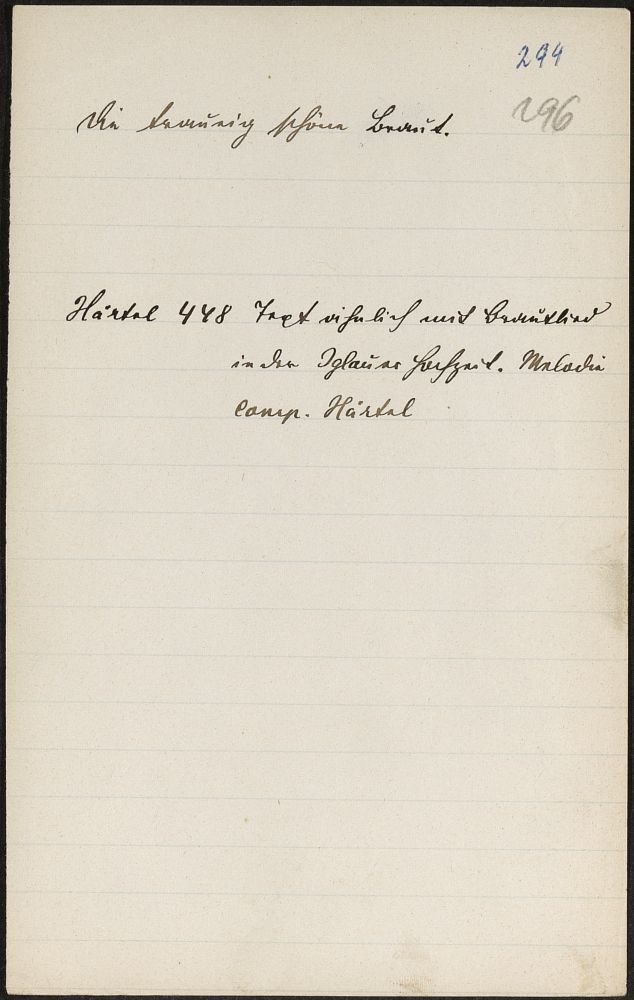 294
296
Die traurig schöne Braut.
Härtel 448 Text ähnlich mit Brautlied
in der Iglauer Hochzeit. Melodie
comp. Härtel